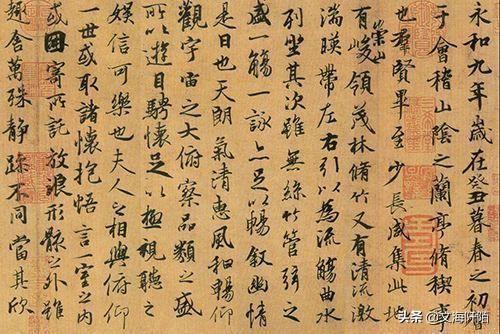 永和九年歲在癸丑暮春之初
于會稽山陰之蘭亭脩稧事
也羣賢畢至少長咸集此地
有崇山峻領茂林脩竹又有清流激
湍暎帶左右引以為流觴曲水
列坐其次雖無絲竹管弦之
盛一觴一詠亦足以暢敘幽情
是日也天朗氣清惠風和暢仰
觀宇宙之大俯察品類之盛
所以遊目騁懷足以極視聽之
娛信可樂也夫人之相與俯仰
一世或取諸懷抱悟言一室之內
或因寄所託放浪形骸之外雖
趣舍萬殊靜躁不同當其欣
头条 @文海阡陌